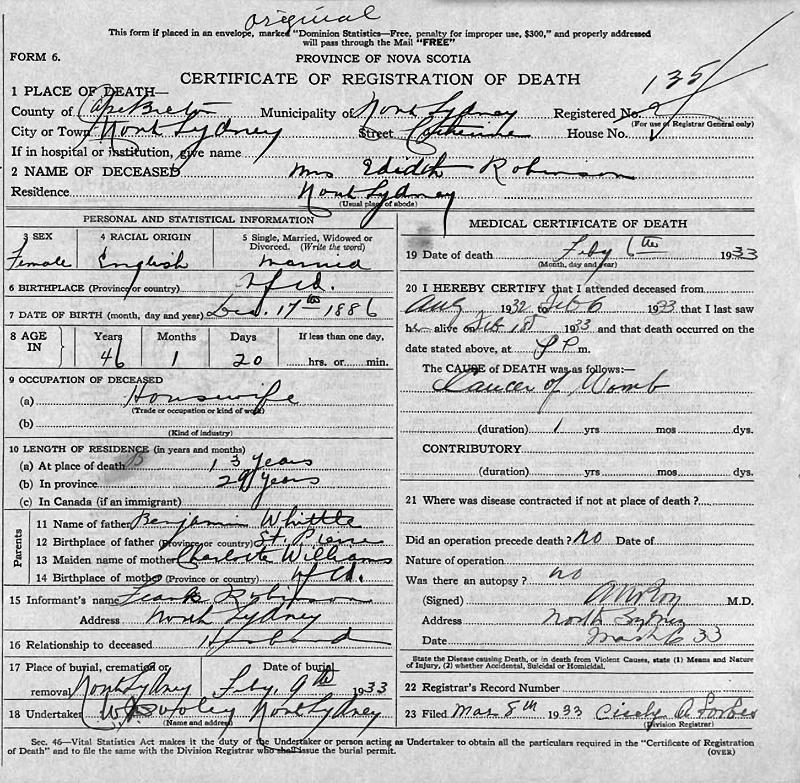 original
This form if placed in an envelope, marked "Dominion Statistics—Free, penalty for improper use, $300," and properly addressed
will pass through the Mail "FREE"
FORM 6.
PROVINCE OF NOVA SCOTIA
CERTIFICATE OF REGISTRATION OF DEATH
135
1 PLACE OF DEATH—
County of Cape Breton Municipality of North Sydney Registered No. 9
(For use of Registrar General only)
City or Town North Sydney Street Catherine House No.
If in hospital or institution, give name
2 NAME OF DECEASED Mrs Edidth Robinson
Residence North Sydney
(Usual place of abode)
PERSONAL AND STATISTICAL INFORMATION
3 SEX 4 RACIAL ORIGIN 5 Single, Married, Widowed or Divorced. (Write the word)
Female English Married
6 BIRTHPLACE (Province or country) Nfld.
7 DATE OF BIRTH (month, day and year) Dec. 17th 1886
8 AGE IN Years Months Days If less than one day,
46 1 20 hrs. or min.
9 OCCUPATION OF DECEASED
(a) Housewife
(Trade or occupation or kind of work)
(b)
(Kind of industry)
10 LENGTH OF RESIDENCE (in years and months)
(a) At place of death 13 years
(b) In province 29 years
(c) In Canada (if an immigrant)
Parents
11 Name of father Benjamin Whittle
12 Birthplace of father (Province or country) St. Pierre
13 Maiden name of mother Charlotte Williams
14 Birthplace of mother (Province or country) Nfld.
15 Informant's name Frank Robinson
Address North Sydney
16 Relationship to deceased Husband
17 Place of burial, cremation or removal North Sydney Date of burial Feby. 9th 1933
18 Undertaker North Sydney
(Name and address)
MEDICAL CERTIFICATE OF DEATH
19 Date of death Feby 6th 1933
(Month, day and year)
20 I HEREBY CERTIFY that I attended deceased from
Aug 1932 to Feb 6 1933 that I last saw
her alive on Feb 1st 1933 and that death occurred on
date stated above, at P. m.
The CAUSE of DEATH was as follows:—
Cancer of Womb
(duration) 1 yrs mos dys.
CONTRIBUTORY
(duration) yrs mos dys.
21 Where was disease contracted if not at place of death?
Did an operation precede death? no Date of
Nature of operation
Was there an autopsy? no
(Signed) M.D.
Address North Sydney
Date Mar 6 33
State the Disease causing Death, or in death from Violent Causes, state (1) Means and Nature
of Injury, (2) whether Accidental, Suicidal or Homicidal.
22 Registrar's Record Number
23 Filed Mar 8th 1933 A Forbes
(Division Registrar)
Sec. 46—Vital Statistics Act makes it the duty of the Undertaker or person acting as Undertaker to obtain all the particulars required in the "Certificate of Registration
of Death" and to file the same with the Division Registrar who shall issue the burial permit.
(OVER)